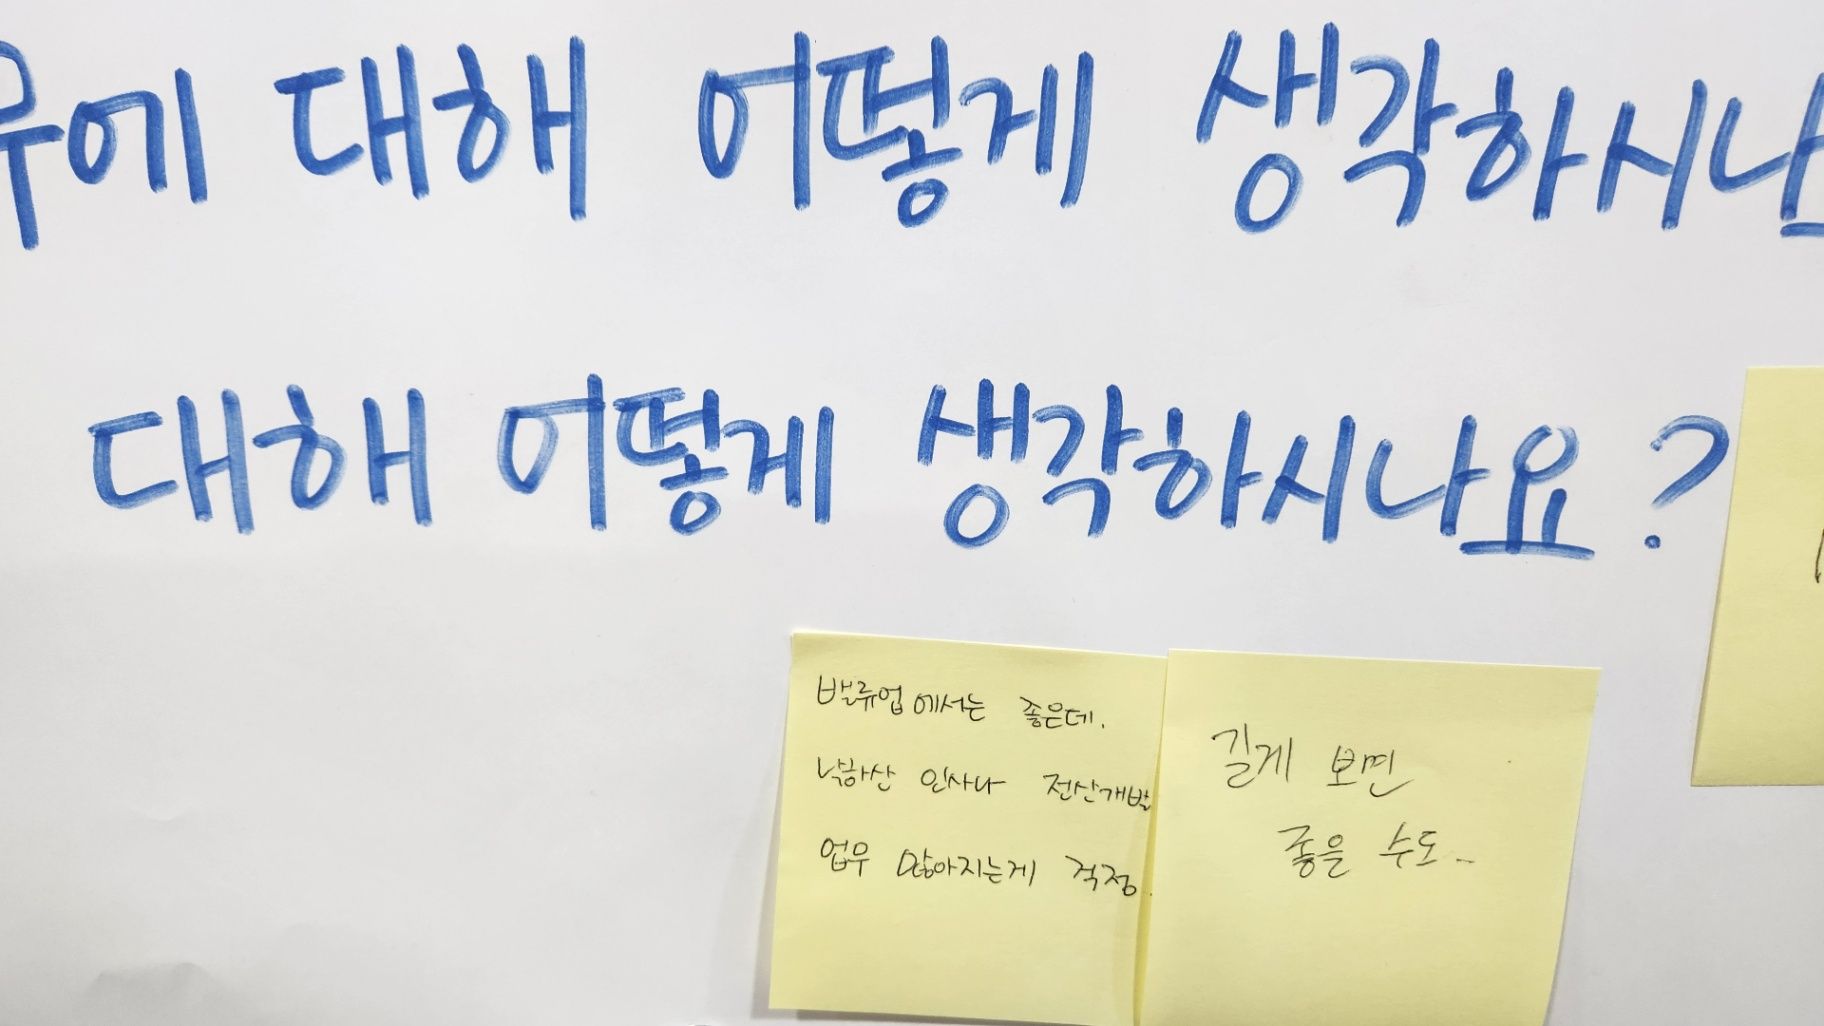 무에 대해 어떻게 생각하시나
대해 어떻게 생각하시나요?
밸류업에서는 좋은데.
낙하산 인사나 전산개발
업무 많아지는게 걱정.
길게 보면
좋을 수도..